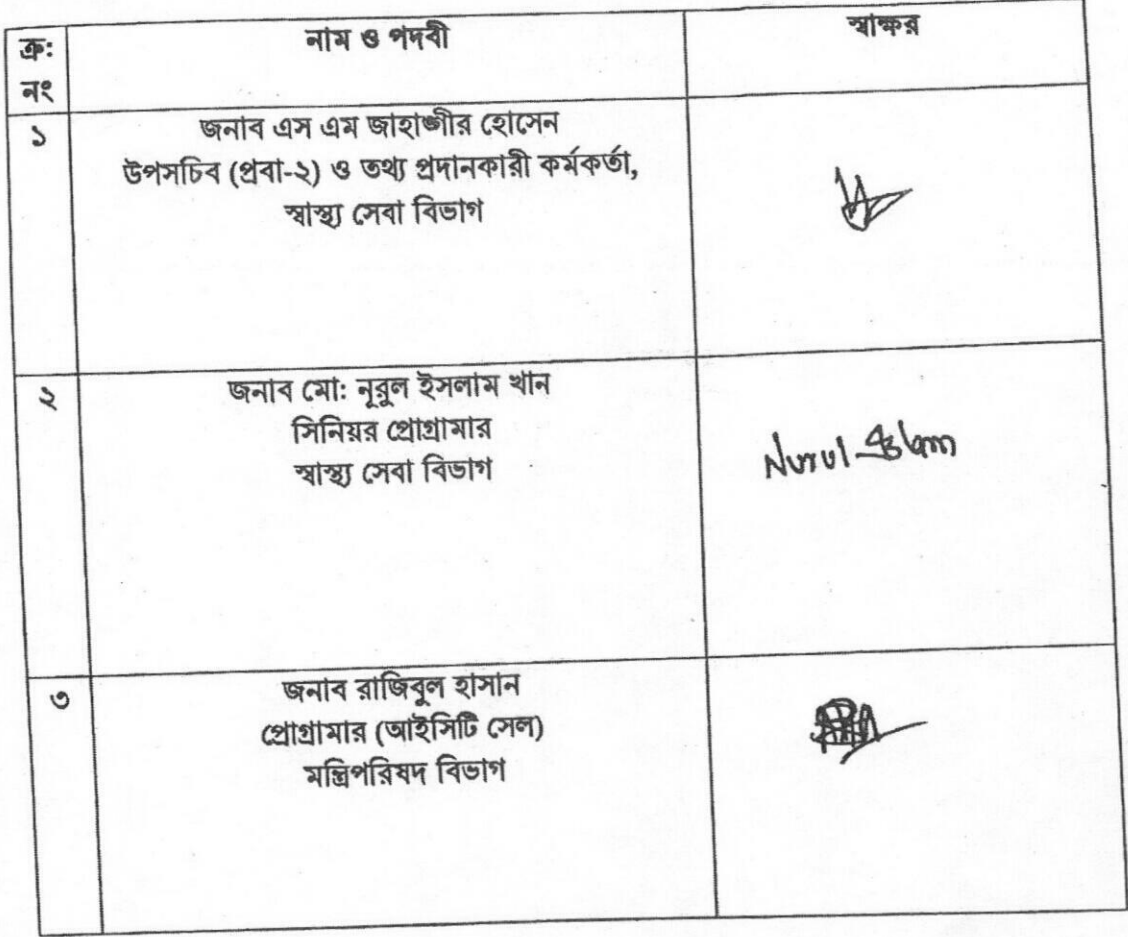 ক্র: নং
নাম ও পদবী
স্বাক্ষর
১
জনাব এস এম জাহাঙ্গীর হোসেন
উপসচিব (প্রবা-২) ও তথ্য প্রদানকারী কর্মকর্তা,
স্বাস্থ্য সেবা বিভাগ
২
জনাব মো: নূরুল ইসলাম খান
সিনিয়র প্রোগ্রামার
স্বাস্থ্য সেবা বিভাগ
Nurul Islam
৩
জনাব রাজিবুল হাসান
প্রোগ্রামার (আইসিটি সেল)
মন্ত্রিপরিষদ বিভাগ